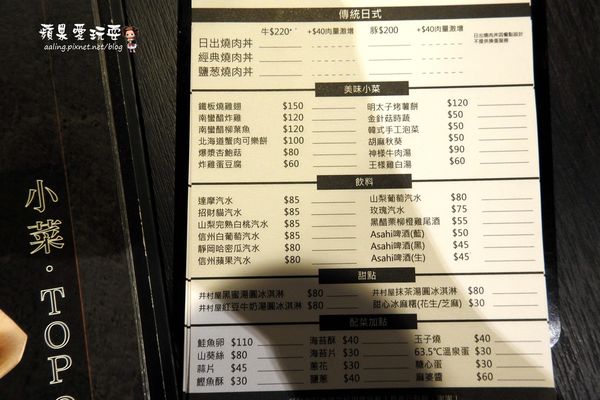 蘋果愛玩耍
aaling.pixnet.net/blog
小菜·TOP
傳統日式
牛$220 +$40肉量激增 豚$200 +$40肉量激增
日出燒肉丼
經典燒肉丼
鹽蔥燒肉丼
日出燒肉丼因餐點設計
不提供換蛋服務
美味小菜
鐵板燒雞翅 $150 明太子烤薯餅 $120
南蠻醋炸雞 $120 金針菇時蔬 $50
南蠻醋柳葉魚 $120 韓式手工泡菜 $50
北海道蟹肉可樂餅 $100 胡麻秋葵 $50
爆漿杏鮑菇 $80 神樣牛肉湯 $90
炸雞蛋豆腐 $60 王樣雞白湯 $60
飲料
達摩汽水 $85 山梨葡萄汽水 $80
招財貓汽水 $85 玫瑰汽水 $75
山梨完熟白桃汽水 $85 黑醋栗柳橙雞尾酒 $55
信州白葡萄汽水 $85 Asahi啤酒(藍) $50
靜岡哈密瓜汽水 $80 Asahi啤酒(黑) $45
信州蘋果汽水 $80 Asahi啤酒(生) $45
甜點
井村屋黑蜜湯圓冰淇淋 $80 井村屋抹茶湯圓冰淇淋 $80
井村屋紅豆牛奶湯圓冰淇淋 $80 甜心冰麻糬(花生/芝麻) $30
配菜加點
鮭魚卵 $110 海苔酥 $40 玉子燒 $40
山葵絲 $80 海苔片 $30 63.5℃溫泉蛋 $30
蒜片 $45 蔥花 $30 糖心蛋 $30
鰹魚酥 $30 鹽蔥 $40 麻婆醬 $60